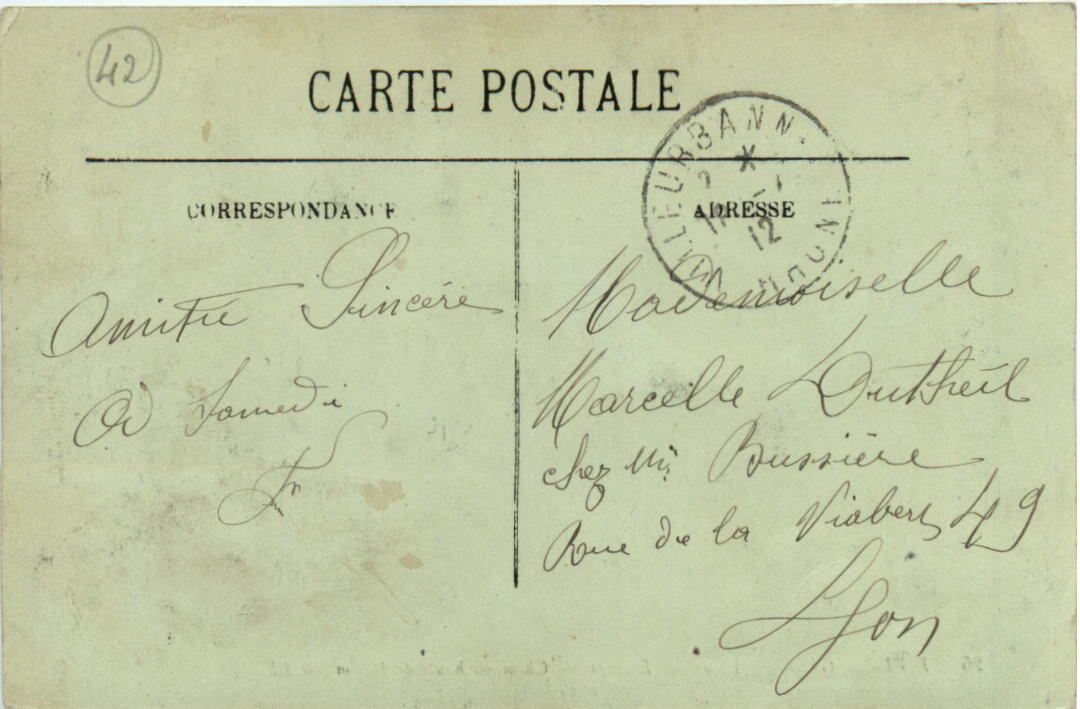 42
CARTE POSTALE
VILLEURBANN
12
CORRESPONDANCE
ADRESSE
Amitié Sincère
A Samedi
Mademoiselle
Marcelle Dutheil
chez Mr Bussière
Rue de la Viabert 49
Lyon